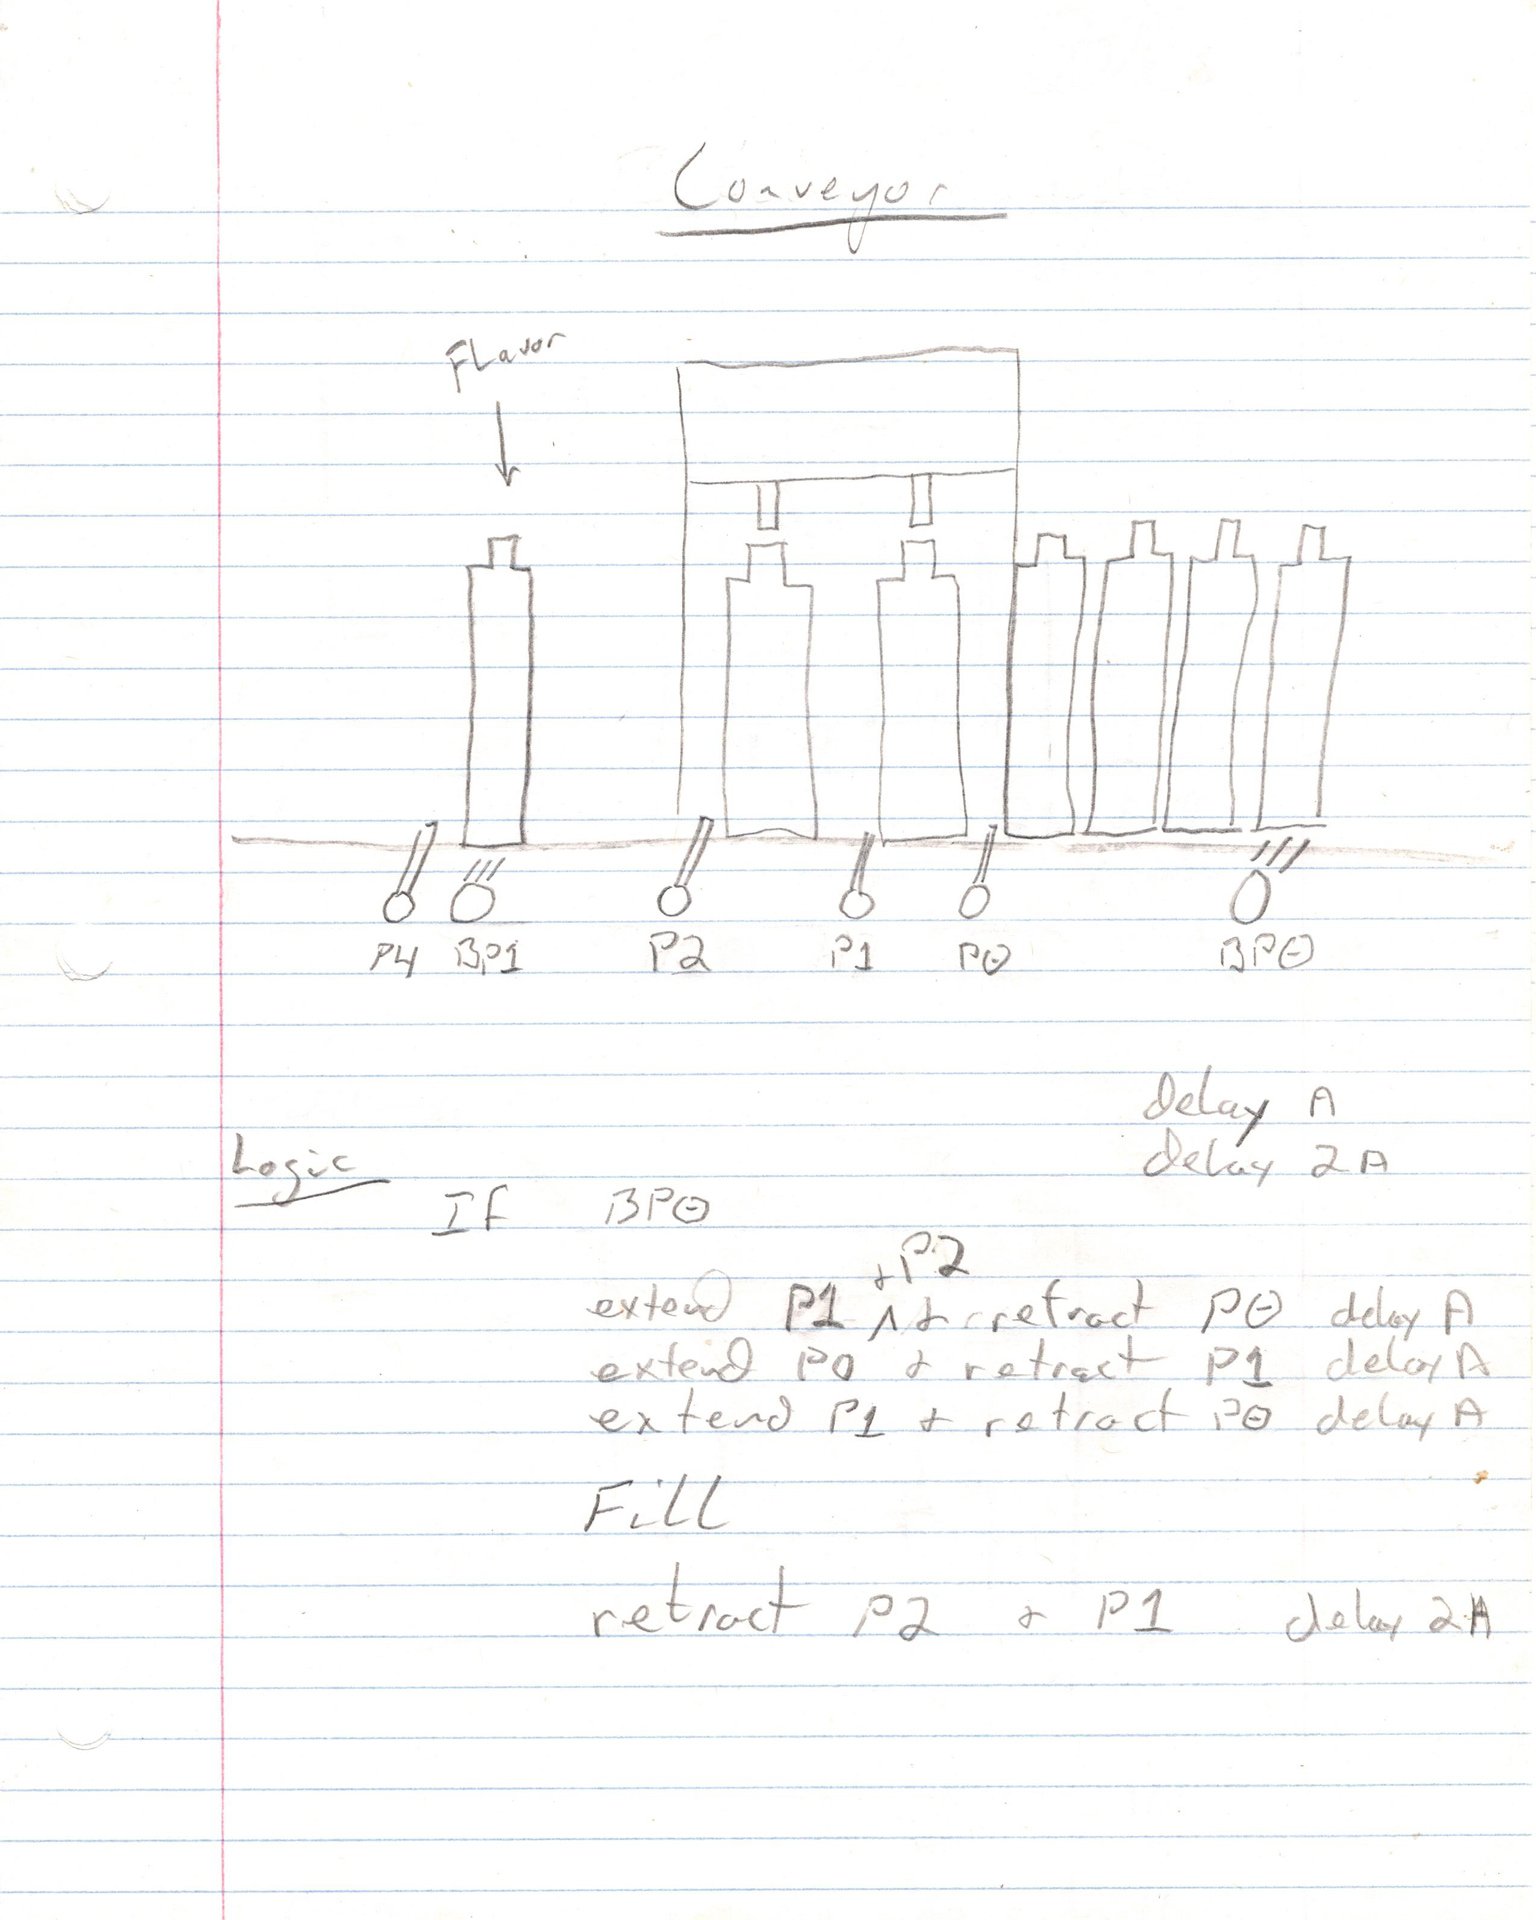 Conveyor
FLavor
P4 BP1 P2 P1 P0 BP0
delay A
delay 2A
Logic
If BP0
+ P2
extend P1 ^ + retract P0 delay A
extend P0 + retract P1 delay A
extend P1 + retract P0 delay A
Fill
retract P2 + P1 delay 2A